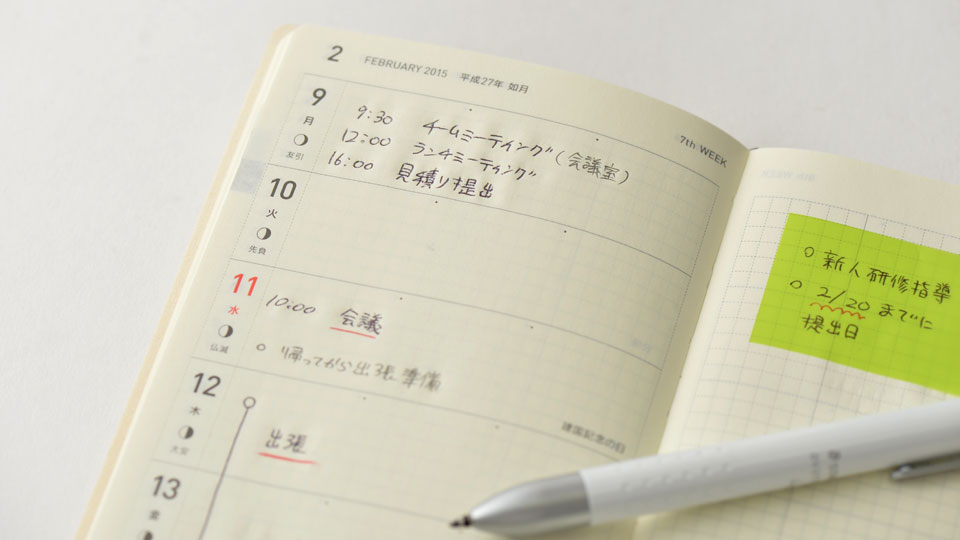 2 FEBRUARY 2015 平成27年 如月
7th WEEK
9
月
友引
9:30 チームミーティング(会議室)
12:00 ランチミーティング
16:00 見積り提出
10
火
先負
11
水
仏滅
10:00 会議
○ 帰ってから出張準備
建国記念の日
12
木
大安
出張
13
金
8th WEEK
○ 新人研修指導
○ 2/20 までに
提出日